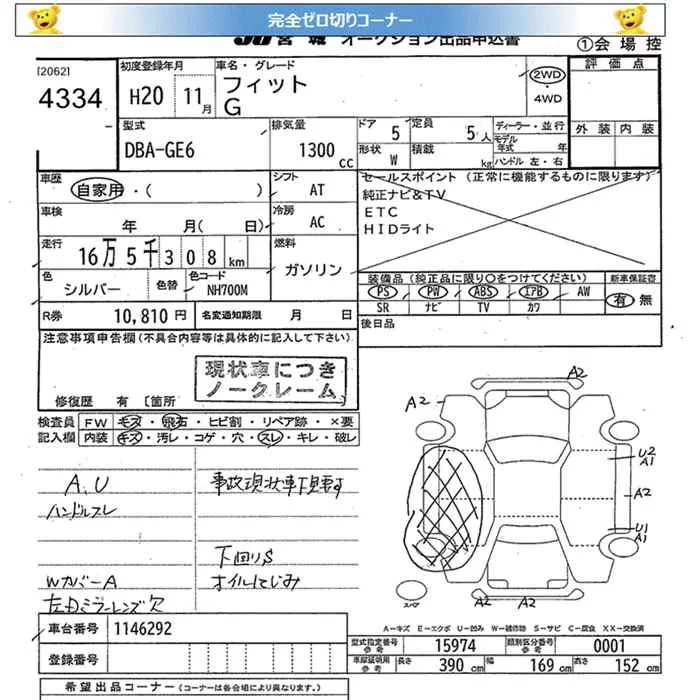 完全ゼロ切りコーナー
JU宮城 オークション出品申込書
①会場控
[2062]
4334
初度登録年月
H20 11月
車名・グレード
フィット
G
2WD
4WD
評価点
外装 内装
型式
DBA-GE6
排気量
1300cc
ドア 5
定員 5人
形状 W
積載 kg
ディーラー・並行
モデル年式 年
ハンドル 左・右
車歴
自家用・( )
シフト AT
車検
年 月( 日)
冷房 AC
走行
16万5千308km
燃料
ガソリン
色
シルバー
色替
色コード
NH700M
R券 10,810円
名変通知期限 月 日
セールスポイント (正常に機能するものに限ります)
純正ナビ&TV
ETC
HIDライト
装備品(純正品に限り○をつけてください)
PS PW ABS エアB AW
SR ナビ TV カワ
新車保証書
有 無
後日品
注意事項申告欄(不具合内容等は具体的に記入して下さい)
現状車につき
ノークレーム
修復歴 有〔箇所
検査員
記入欄
FW キズ・飛石・ヒビ割・リペア跡・×要
内装 キズ・汚レ・コゲ・穴・スレ・キレ・破レ
A、U
ハンドルスレ
Wカバー A
左ドミラーレンズ欠
事故現状車下見要す
下回りS
オイルにじみ
A2
A2
U2
A1
A2
U1
A1
A2 A2
スペア
A=キズ E=エクボ U=凹み W=補修跡 S=サビ C=腐食 XX=交換済
車台番号 1146292
登録番号
型式指定番号
参考
15974
類別区分番号
参考
0001
車庫証明用
参考
長さ 390 cm
幅 169 cm
高さ 152 cm
希望出品コーナー(コーナーは各会場により異なります。)